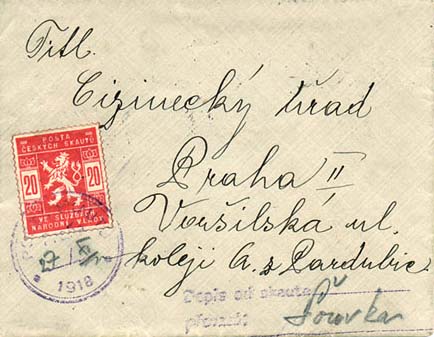 Titl.
Cizinecký úřad
Praha II
Voršilská ul.
koleji A. z Pardubic.
POŠTA
ČESKÝCH SKAUTŮ
20 20
VE SLUŽBÁCH
NÁRODNÍ VLÁDY
27 XI
1918
Dopis od skauta
převzal: